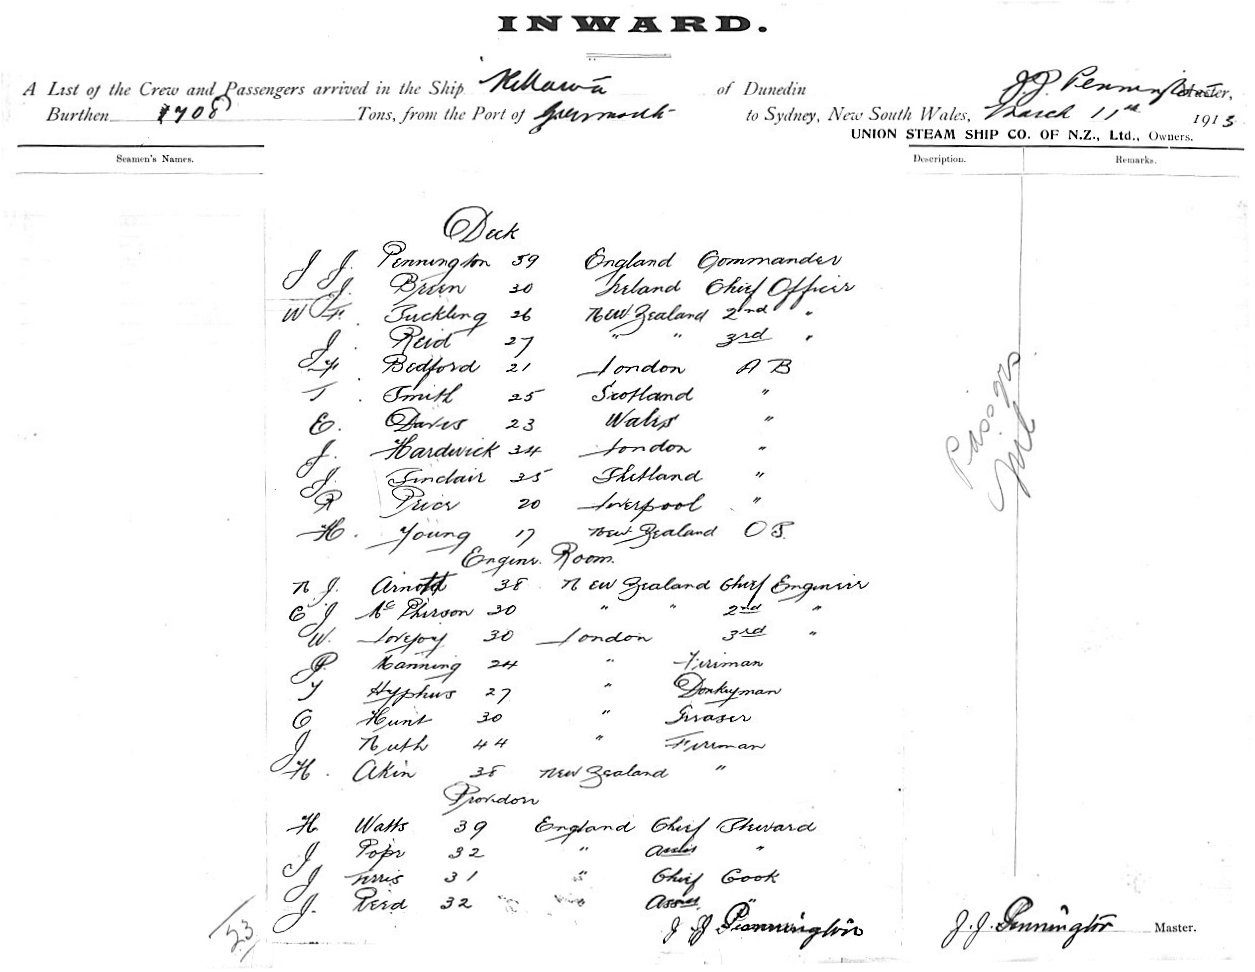 INWARD.
A List of the Crew and Passengers arrived in the Ship Kittawa of Dunedin J. J. Pennington Master,
Burthen 1708 Tons, from the Port of Greymouth to Sydney, New South Wales, March 11th 1913
UNION STEAM SHIP CO. OF N.Z., Ltd., Owners.
Seamen's Names. Description. Remarks.
Deck
J J. Pennington 59 England Commander
J. Breen 30 Ireland Chief Officer
W F. Suckling 26 New Zealand 2nd "
J. Reid 27 " " 3rd "
Bedford 21 London A B
T Smith 25 Scotland "
E. Davis 23 Wales "
J. Hardwick 34 London "
J. Sinclair 35 Shetland "
R Price 20 Liverpool "
H. Young 17 New Zealand O S.
Engine Room.
N J. Arnott 38 New Zealand Chief Engineer
C J McPherson 30 " " 2nd "
W. Lovejoy 30 London 3rd "
P. Manning 24 " Fireman
T Hyphus 27 " Donkeyman
C Hunt 30 " Greaser
J Ruth 44 " Fireman
H. Akin 38 New Zealand "
Providor
H Watts 39 England Chief Steward
J Pope 32 " Assist "
J Ferris 31 " Chief Cook
J. Reid 32 " " Assist "
Passgrs
Nil
23
J J Pennington
J. J. Pennington Master.